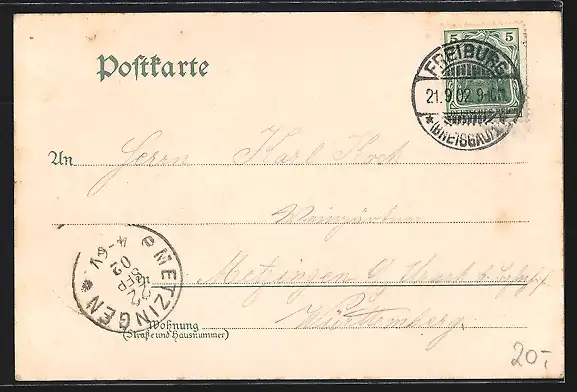 Postkarte
5 5
FREIBURG
21.9.02 9-
* (BREISGAU) *
An Herrn Karl Koch
Weingärtner
Metzingen
Württemberg
METZINGEN
22 SEP 02
4-
Wohnung
(Straße und Hausnummer)
20,-